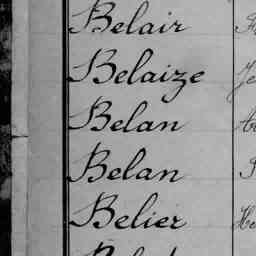 Belair
Belaize
Belan
Belan
Belier